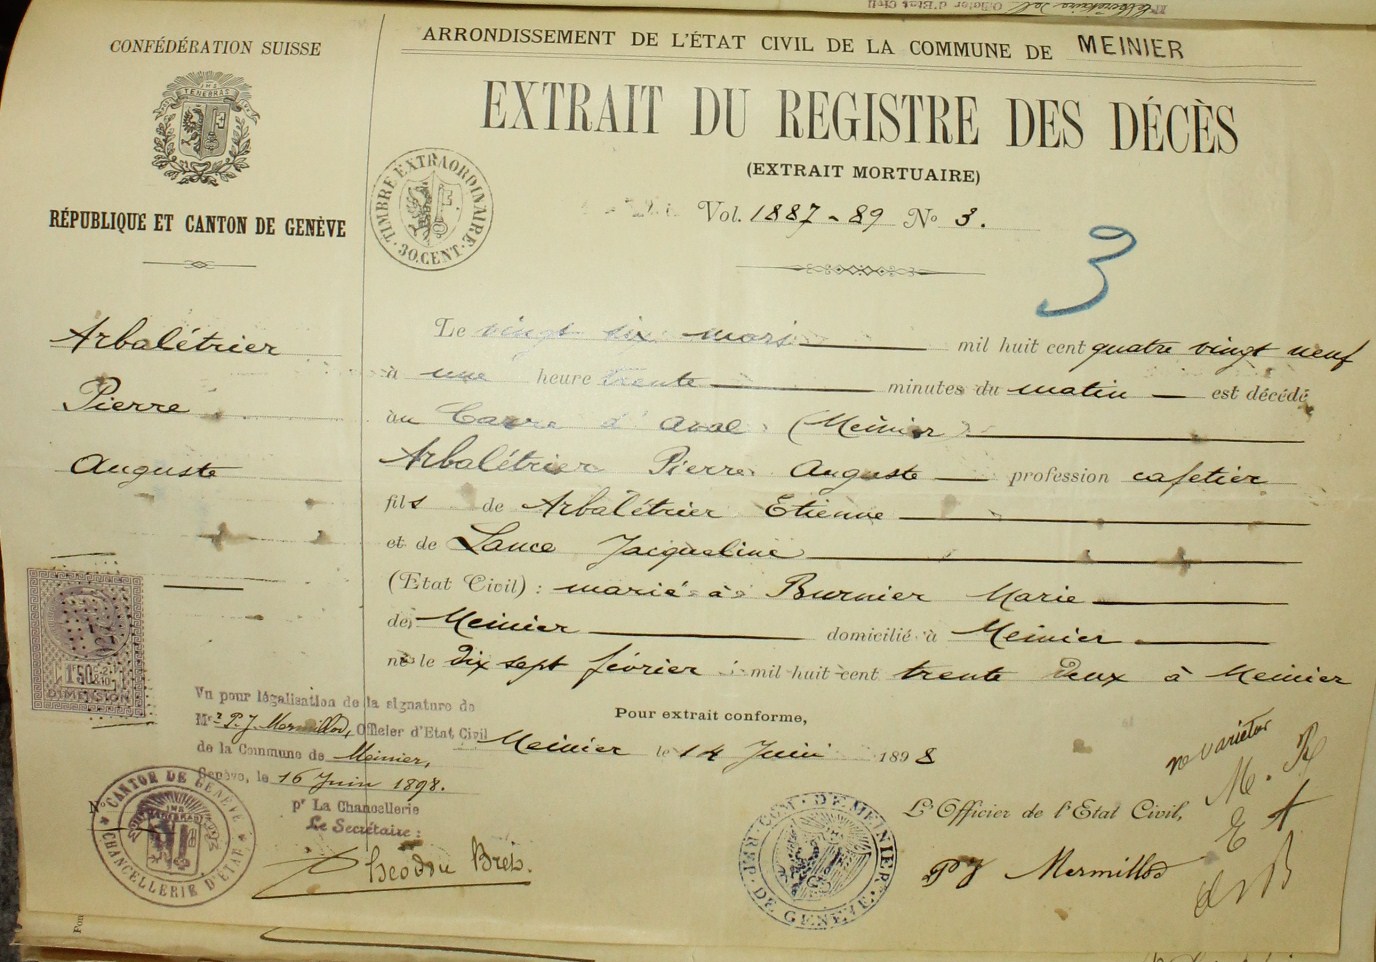 CONFÉDÉRATION SUISSE
TENEBRAS
RÉPUBLIQUE ET CANTON DE GENÈVE
Arbalétrier
Pierre
Auguste
ARRONDISSEMENT DE L'ÉTAT CIVIL DE LA COMMUNE DE MEINIER
EXTRAIT DU REGISTRE DES DÉCÈS
(EXTRAIT MORTUAIRE)
TIMBRE EXTRAORDINAIRE
30. CENT.
Vol. 1887-89 No 3.
3
Le vingt six mars mil huit cent quatre vingt neuf
à une heure trente minutes du matin est décédé
au Carre d'aval (Meinier)
Arbalétrier Pierre Auguste profession cafetier
fils de Arbalétrier Etienne
et de Lance Jacqueline
(Etat Civil) : marié à Burnier Marie
de Meinier domicilié à Meinier
né le dix sept février mil huit cent trente deux à Meinier
Pour extrait conforme,
Meinier le 14 Juin 1898
L'Officier de l'Etat Civil,
P J Mermillod
ne varietur
M. R
E A
B
REP. DE GENÈVE COM. DE MEINIER
1F50
DIMENSION
Vu pour légalisation de la signature de
Mr P. J. Mermillod, Officier d'Etat Civil
de la Commune de Meinier,
Genève, le 16 Juin 1898.
pr La Chancellerie
Le Secrétaire :
CANTON DE GENEVE
CHANCELLERIE D'ÉTAT